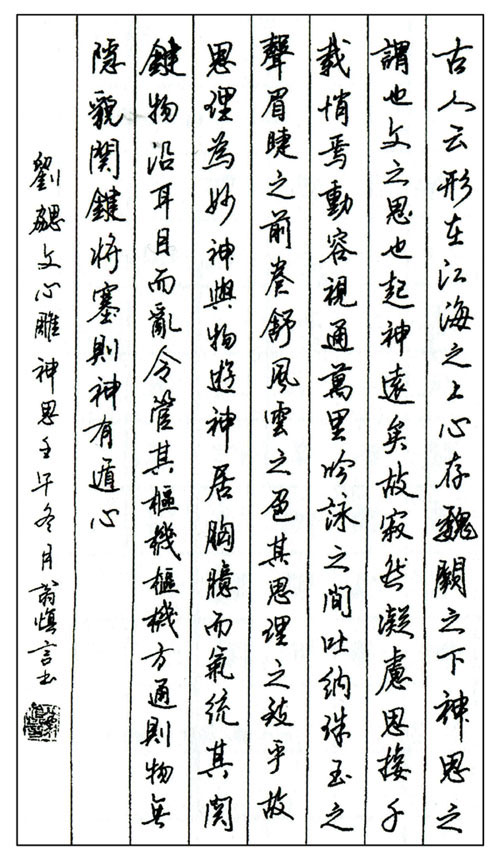 古人云形在江海之上心存魏闕之下神思之
謂也文之思也起神遠矣故寂然凝慮思接千
載悄焉動容視通萬里吟詠之間吐納珠玉之
聲眉睫之前卷舒風雲之色其思理之致乎故
思理為妙神與物遊神居胸臆而氣統其関
鍵物沿耳目而亂令管其樞機樞機方通則物无
隱貌関鍵將塞則神有遁心
劉勰文心雕神思壬午冬月翁慎言书